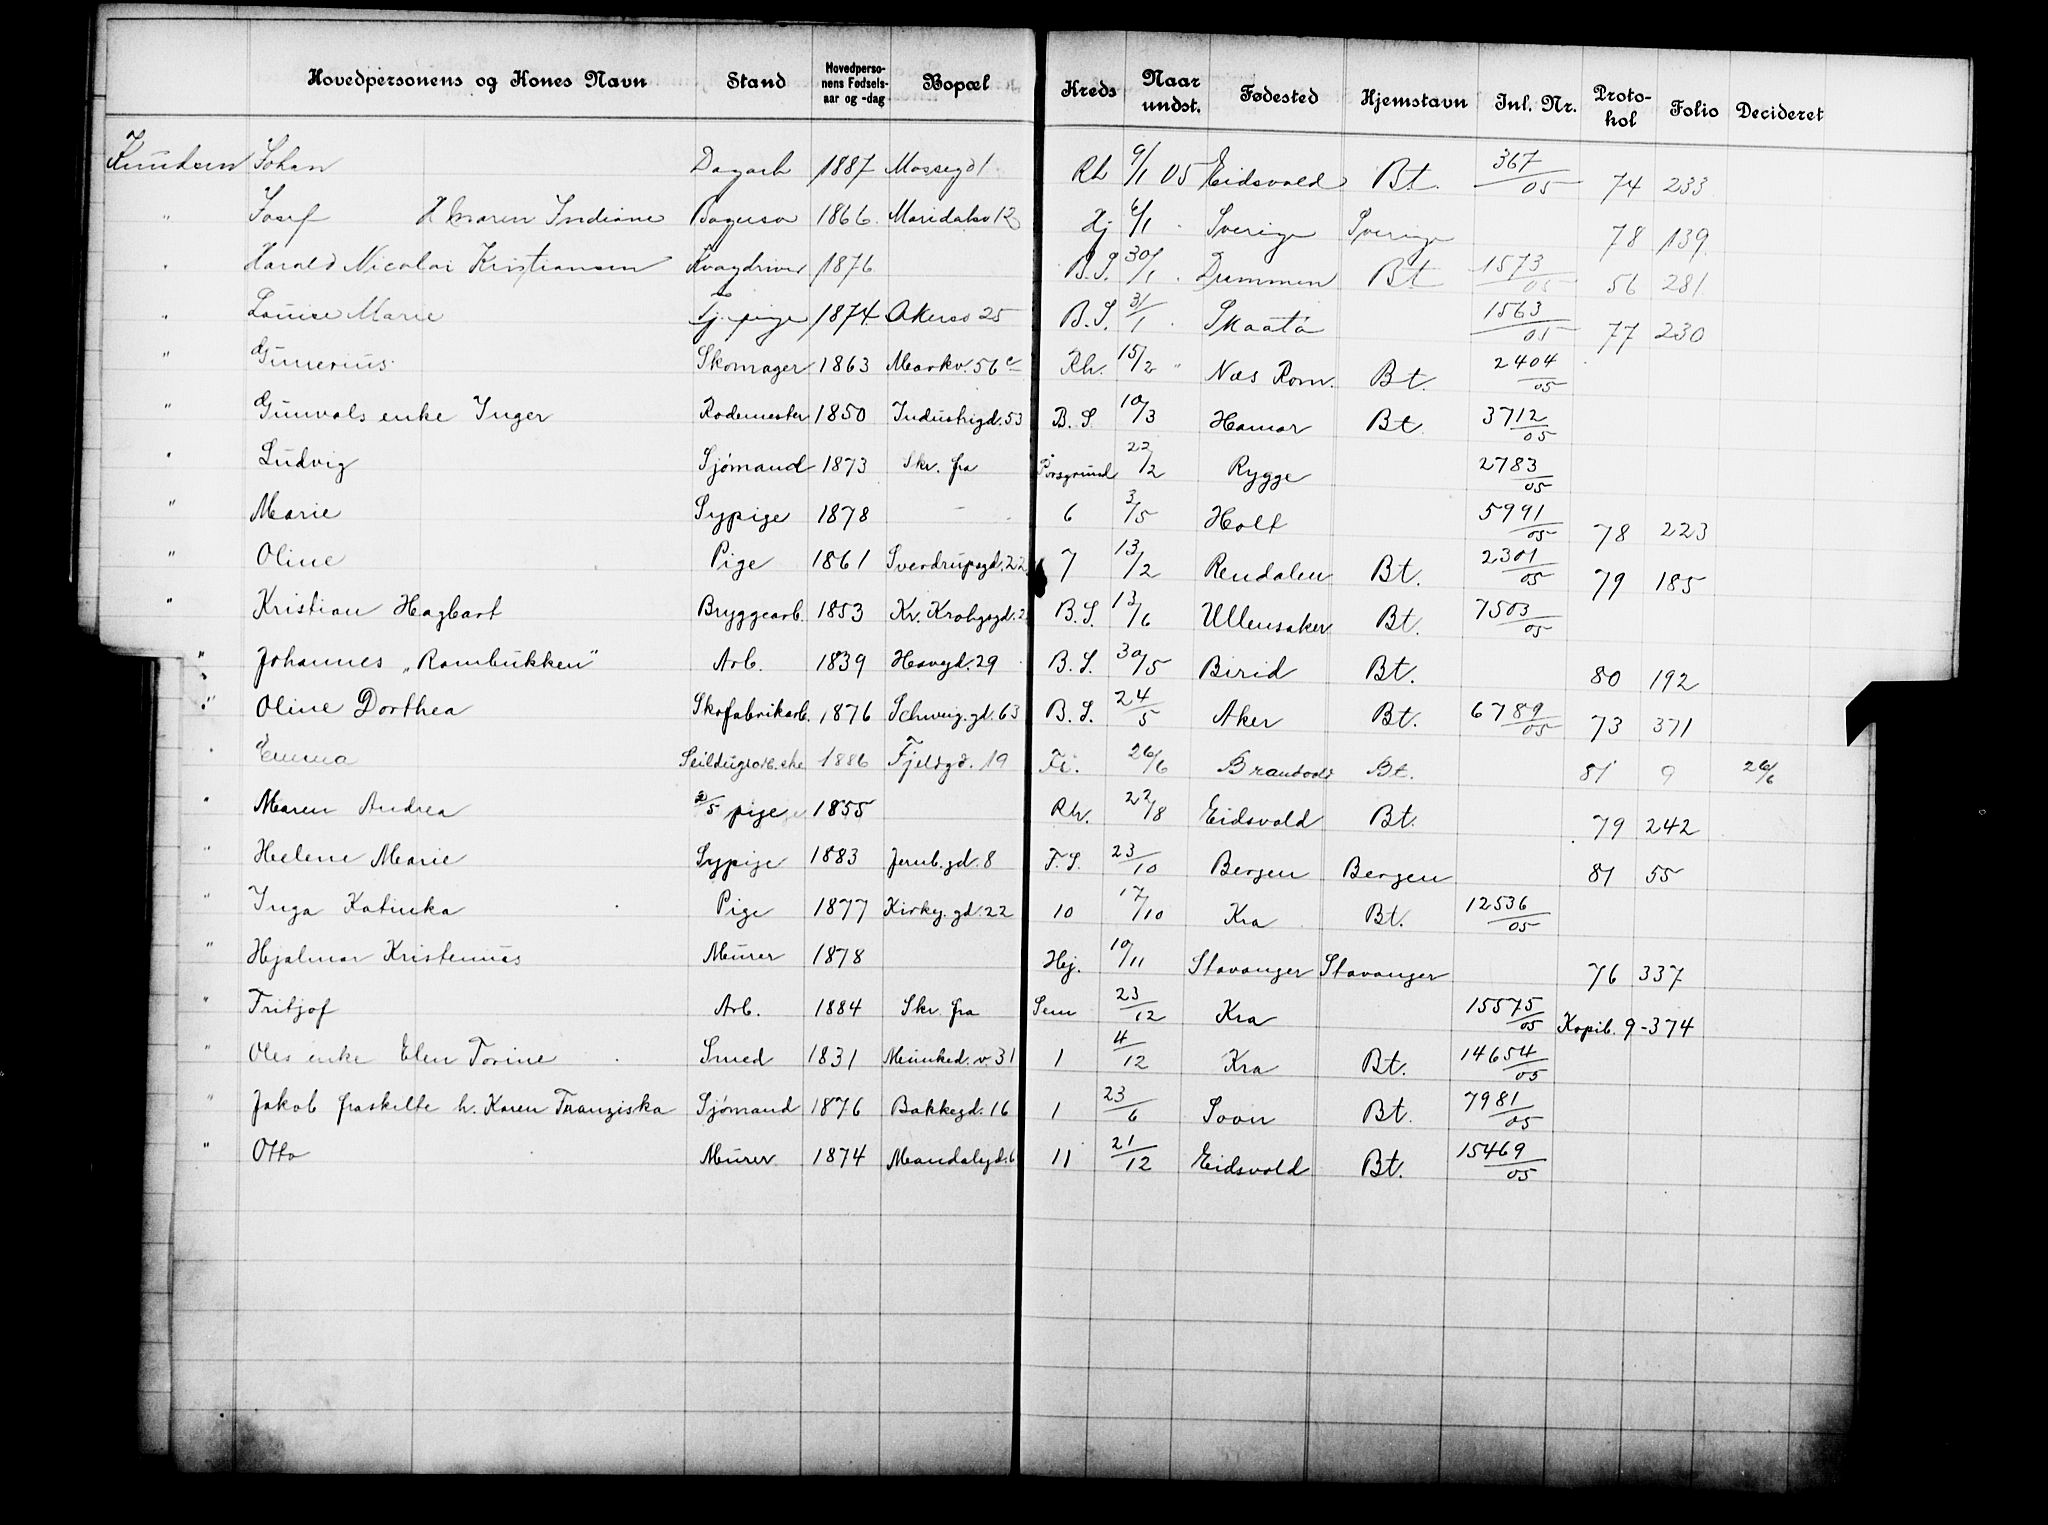 Hovedpersonens og Kones Navn Stand Hovedpersonens Fødselsaar og -dag Bopæl Kreds Naar undst. Fødested Hjemstavn Inl. Nr. Protokol Folio Decideret
Knudsen Johan Dagarb 1887 Mossegd 1 Rh 9/1 05 Eidsvold Bt. 367/05 74 233
" Josef H Maren Indiane 1866 Maridalsv 12 Hj 6/1 Sverige Sverige 78 139
" Harald Nicolai Kristiansen Kvægdriver 1876 B.S. 30/1 Drammen Bt 1573/05 56 281
" Louise Marie Tj. pige 1874 Akersv 25 B.S. 31/1 Skaatø 1563/05 77 230
" Gunerius Skomager 1863 Markv. 56 c Rh. 15/2 " Næs Rom. Bt. 2404/05
" Gunvals enke Inger Rodemester 1850 Industrigd. 53 B.S. 10/3 Hamar Bt. 3712/05
" Ludvig Sjømand 1873 Skr. fra Porsgrund 22/2 Rygge 2783/05
" Marie Sypige 1878 - 6 3/5 Holt 5991/05 78 223
" Oline Pige 1861 Sverdrupsgd. 22 7 13/2 Rendalen Bt. 2301/05 79 185
" Kristian Hagbart Bryggearb. 1853 Kr. Krohgsgd. 2 B.S. 13/6 Ullensaker Bt. 7503/05
" Johannes „Rambukken" Arb. 1839 Hausgd. 29 B.S. 30/5 Birid Bt. 80 192
" Oline Dorthea Skofabrikarb. 1876 Schweig. gd. 63 B.S. 24/5 Aker Bt. 6789/05 73 371
" Emma Seildugsarb.ske 1886 Fjeldgd. 19 Fr. 26/6 Brandvold Bt. 81 9 26/6
" Maren Andrea pige 1855 Rh. 22/8 Eidsvold Bt. 79 242
" Helene Marie Sypige 1883 Jernb. gd. 8 F.S. 23/10 Bergen Bergen 81 55
" Inga Katinka Pige 1877 Kirkeg. gd. 22 10 17/10 Kra Bt. 12536/05
" Hjalmar Kristennus Murer 1878 Hej. 10/11 Stavanger Stavanger 76 337
" Fritjof Arb. 1884 Skr. fra Sem 23/12 Kra 15575/05 Kopib. 9-374
" Oles enke Elen Torine Smed 1831 Munked. v. 31 1 4/12 Kra Bt. 14654/05
" Jakob fraskilte h. Karen Franziska Sjømand 1876 Bakkegd. 16 1 23/6 Soon Bt. 7981/05
" Otto Murer 1874 Mandalsgd. 6 11 21/12 Eidsvold Bt. 15469/05